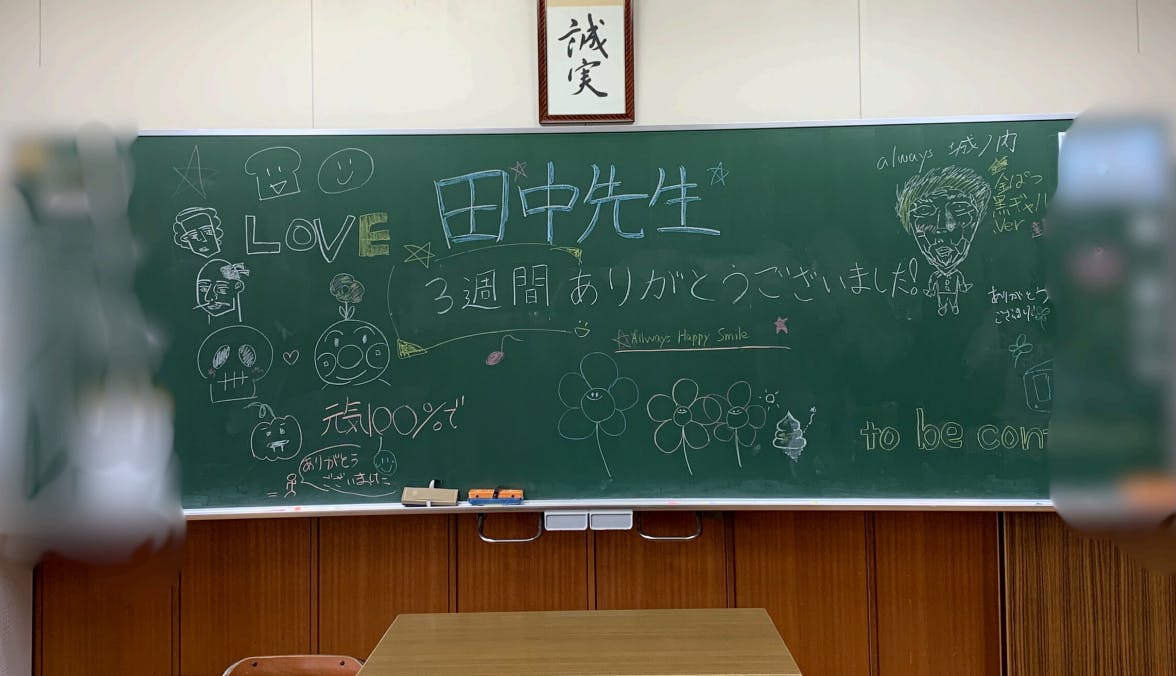 誠実
always 城ノ内
金ぱつ
黒ギャル
ver
田中先生
LOVE
3週間ありがとうございました!
ありがとう
Allways Happy Smile
元気100%で
ありがとう
ございました
to be con